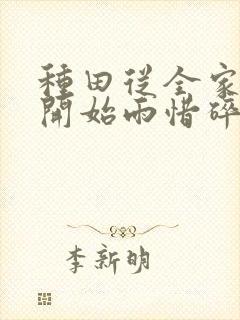 種田從全家
開始雨惜碎
李新明